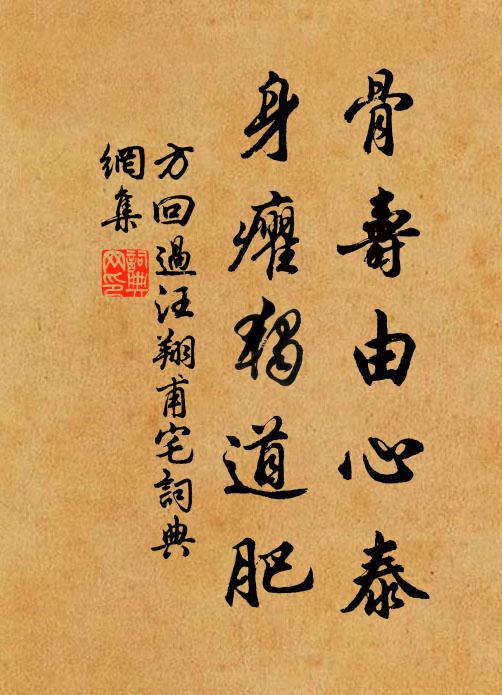 骨壽由心泰
身癯獨道肥
方回過汪翔甫宅詞典
網集
詞典
网印